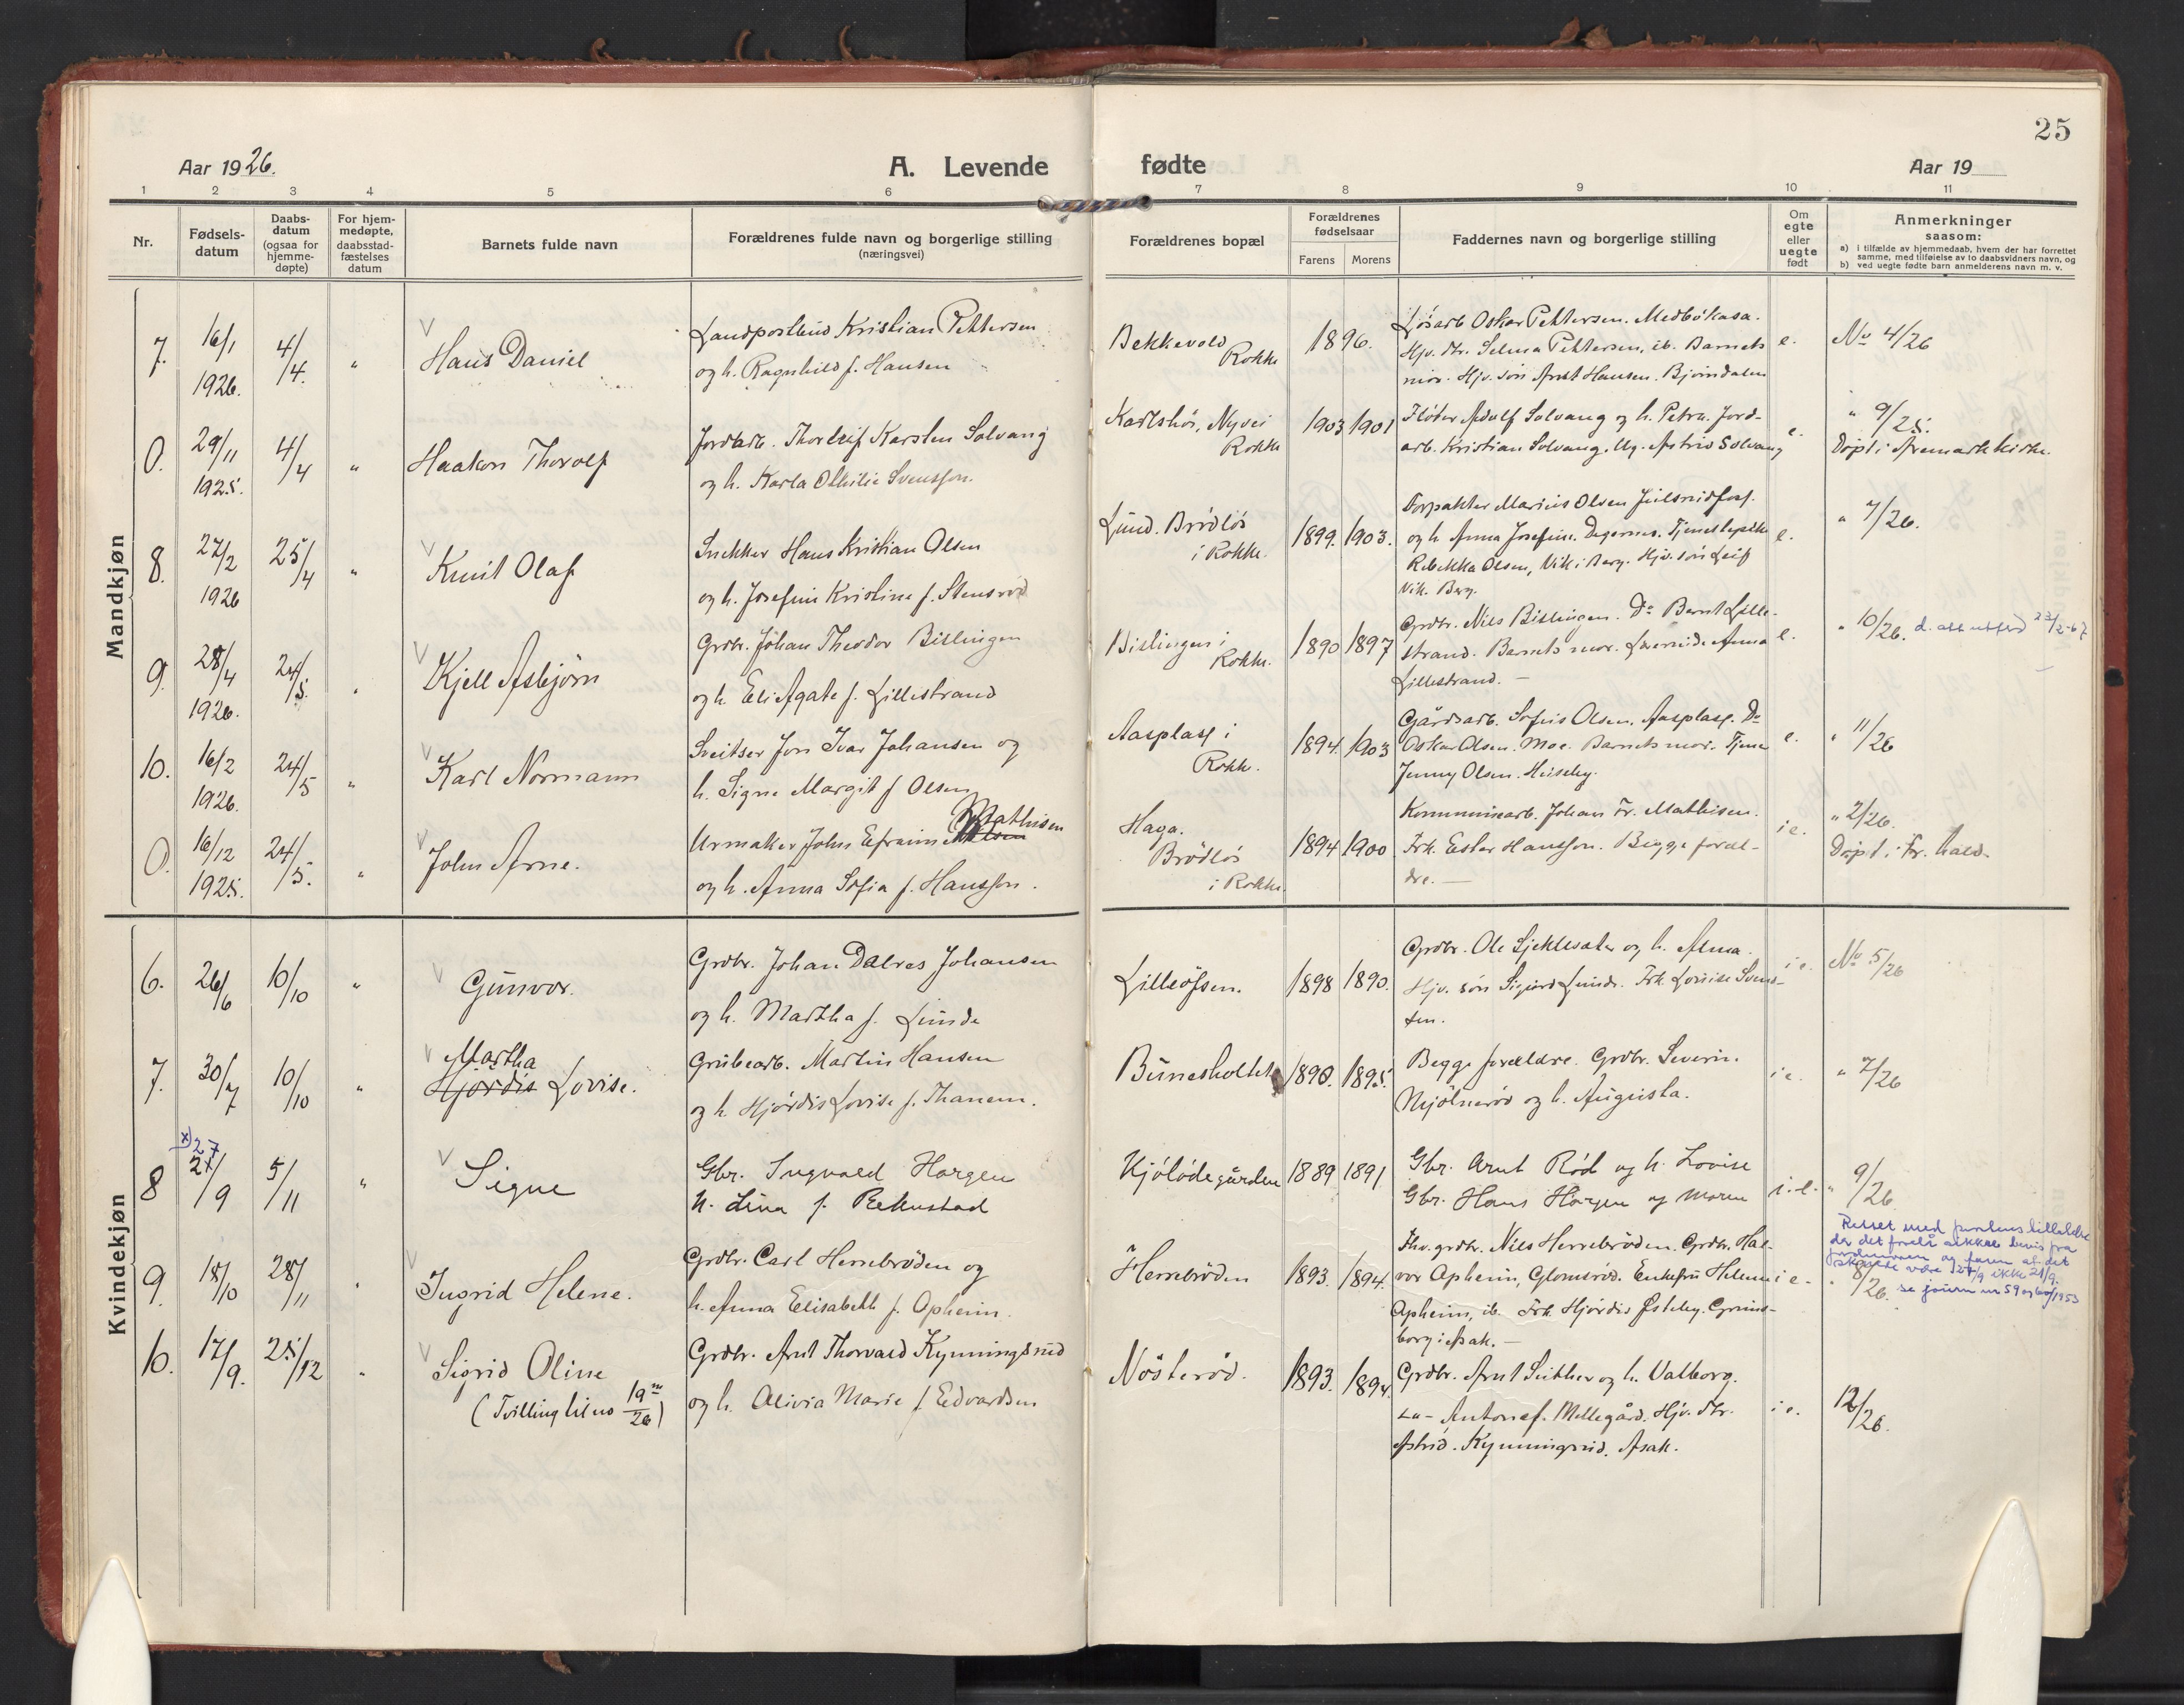 25
Aar 1926.
A. Levende fødte
Aar 19
1 2 3 4 5 6 7 8 9 10 11
Nr.
Fødsels-
datum
Daabs-
datum
(ogsaa for
hjemme-
døpte)
For hjem-
medøpte,
daabsstad-
fæstelses
datum
Barnets fulde navn
Forældrenes fulde navn og borgerlige stilling
(næringsvei)
Forældrenes bopæl
Forældrenes
fødselsaar
Farens Morens
Faddernes navn og borgerlige stilling
Om
egte
eller
uegte
født
Anmerkninger
saasom:
a) i tilfælde av hjemmedaab, hvem der har forrettet
samme, med tilføielse av to daabsvidners navn, og
b) ved uegte fødte barn anmelderens navn m. v.
Mandkjøn
7. 16/1 1926. 4/4. "
Hans Daniel
Landpostbud Kristian Pettersen
og h. Ragnhild f. Hansen
Bekkevold
Rokke
1896.
Løsarb Oskar Pettersen. Medbøkasa.
Hjv. dtr. Selma Pettersen, ib. Barnets
mor. Hjv. søn Arnt Hansen. Bjørndalen
e.
No 4/26
0. 29/11 1925. 4/4 "
Haakon Thorolf
Jordarb. Thorleif Karsten Solvang
og h. Karla Othilie Svensson.
Karlshøi, Nyvei
Rokke
1903 1901
Fløter Adolf Solvang og h. Petra. Jord-
arb. Kristian Solvang. Ug. Astrid Solvang
e.
" 9/25.
Døpt i Aremark kirke.
8. 27/2 1926 25/4 "
Knut Olaf
Snekker Hans Kristian Olsen
og h. Josefine Kristine f. Stensrød
Lund. Brødløs
i Rokke.
1899. 1903.
Forpakter Marius Olsen
og h Anna Josefine. Degernes. Tjenestepike
Rebekka Olsen, Vik i Berg. Hjv. søn Leif
Vik. Berg.
e.
" 7/26.
9. 28/4 1926. 24/5. "
Kjell Asbjørn
Grdbr. Johan Theodor Bislingen
og h. Eli Agate f. Lillestrand
Bislingen i
Rokke.
1890 1897
Grdbr. Nils Bislingen. Do Bernt Lille-
strand. Barnets mor. Anna
Lillestrand. —
e.
" 10/26. d. att utferd 23/2-67
10. 16/2 1926. 24/5 "
Karl Normann
Sveitser Jon Ivar Johansen og
h. Signe Margit f Olsen
Aasplass i
Rokk.
1894. 1903
Gårdsarb. Sofus Olsen. Aasplass. Do
Oskar Olsen. Moe. Barnets mor. Tjener
Jenny Olsen. Huseby.
e.
" 11/26
0. 16/12 1925. 24/5. "
John Arne.
Mathisen
Urmaker John Efraim Olsen
og h. Anna Sofia f. Hansson.
Haga.
Brødløs
i Rokke.
1894 1900
Kommunearb. Johan Fr. Mathisen.
Frk. Ester Hansson. Begge foræl-
dre. —
i e.
" 2/26.
Døpt i Fr. hald.
Kvindekjøn
6. 26/6 10/10 "
Gunvor.
Grdbr. Johan Dalres Johansen
og h. Martha f. Lunde
Lilleøssen.
1898 1890.
Grdbr. Ole Sjeklesater og h. Alma.
Hjv. søn Sigurd Lunde. Frk. Lovise Svend-
sen.
i e.
No 5/26
7. 30/7 10/10 "
Martha
Hjørdis Lovise.
Grubearb. Martin Hansen
og h. Hjørdis Lovise f. Thanem.
Bunesholtet
1890. 1895.
Begge forældre. Grdbr. Severin
Mjølnerød og h. Augusta.
i e.
" 7/26
x) 27
8 21/9 5/11 "
Signe
Gbr. Ingvald Horgen
h. Lina f. Rekustad
Kjølødegården
1889 1891
Gbr. Arnt Rød og h. Lovise
Gbr. Hans Horgen og Maren
i. e.
" 9/26
Rettet med tillatelse
da det forelå bevis fra
og faren at det
skulle være 27/9 ikke 21/9.
se journ nr 59 og 60/1953
9. 18/10 28/11 "
Ingrid Helene.
Grdbr. Carl Herrebrøden og
h. Anna Elisabeth f. Opheim.
Herrebrøden
1893. 1894.
Fhv. grdbr. Nils Herrebrøden. Grdbr. Hal-
vor Opheim, Glomsrød. Enkefru Helene
Opheim, ib. Frk Hjørdis Østeby. Grims-
borg i Asak. —
i e.
" 8/26.
10. 17/9. 25/12 "
Sigrid Oline
(Tvilling til no 19m/26)
Grdbr. Arnt Thorvald Kynningsrud
og h. Olivia Marie f Edvardsen
Nøsterød.
1893. 1894.
Grdbr. Arnt Sæther og h. Valborg.
Antonsf. Mellegård. Hjv. dtr.
Astrid. Kynningsrud. Asak.
i e.
12/26.